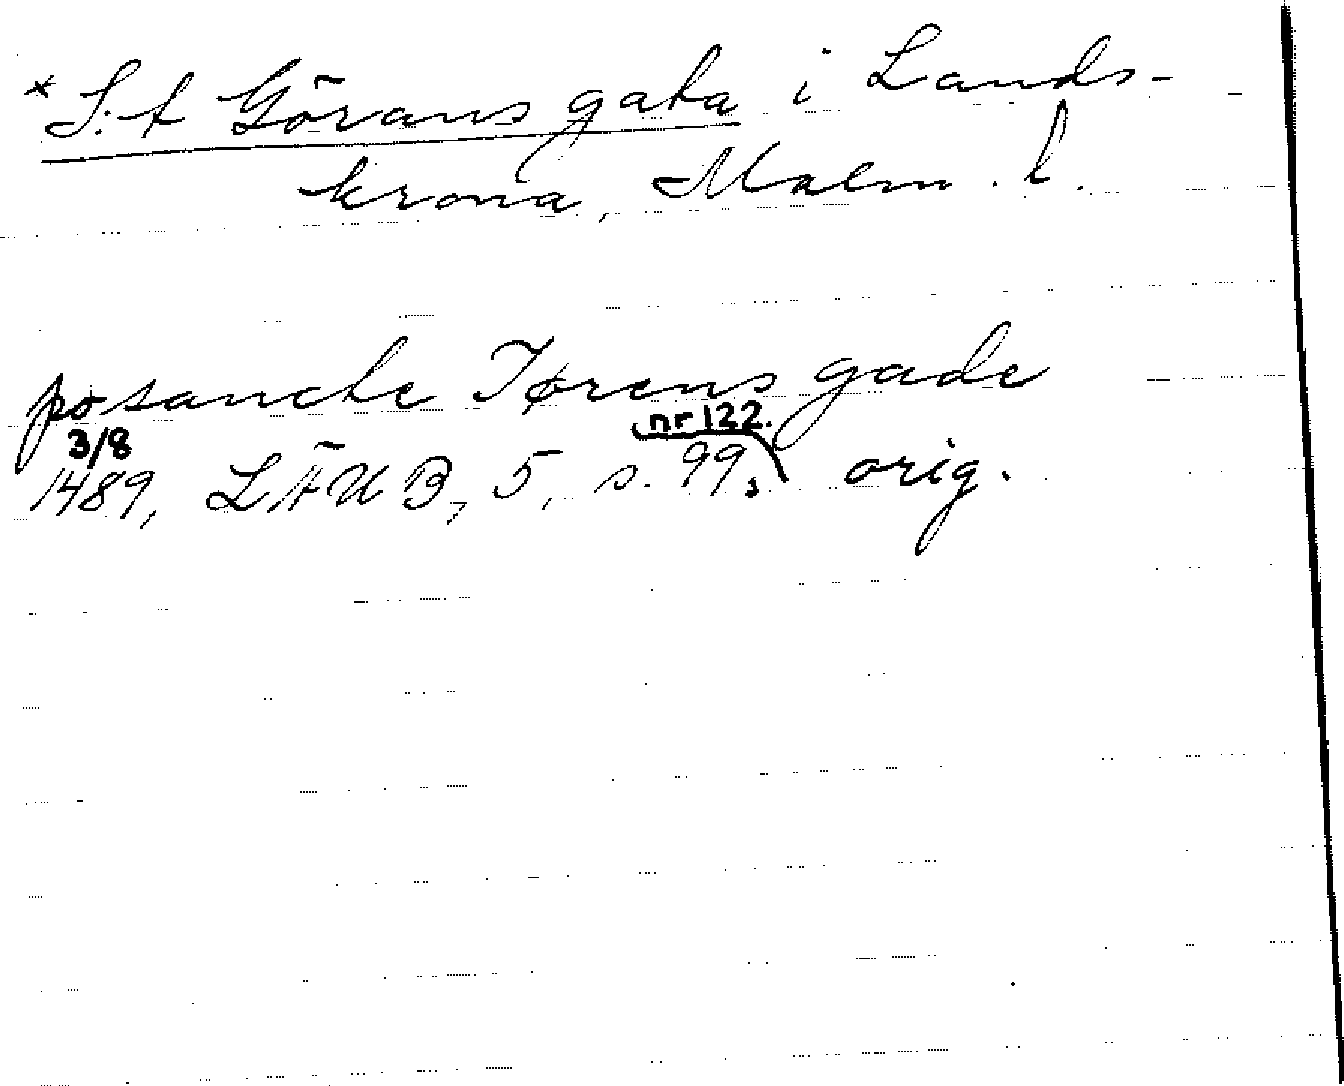 * S:t Görans gata i Lands-
krona, Malm. l.
po sancte Jørens gade
3/8 nr 122.
1489, LÄUB, 5, s. 99, orig.